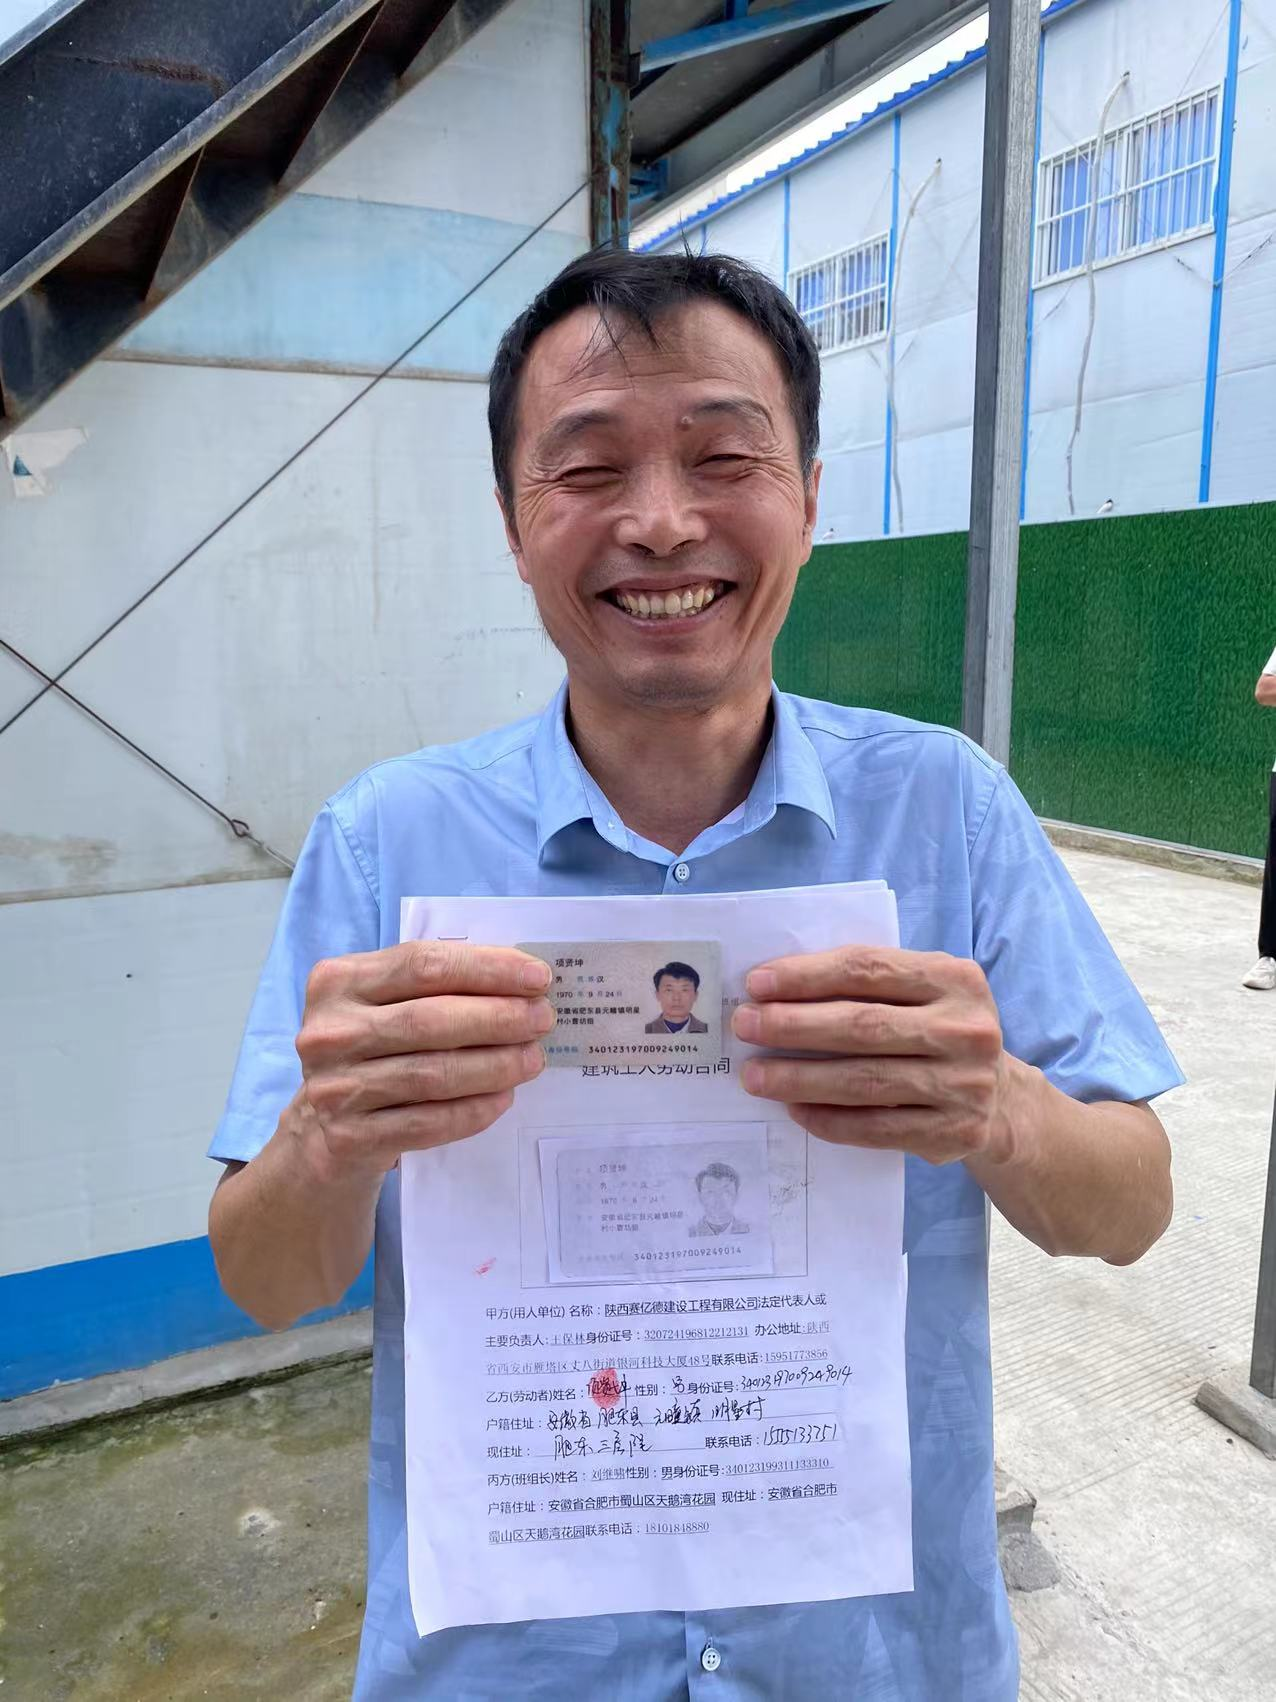 项贤坤
男 汉
1970 年 9 月 24 日
安徽省肥东县元疃镇明星
村小曹坊组
340123197009249014
班组
建筑工人劳动合同
项贤坤
男 汉
1970 年 9 月 24 日
安徽省肥东县元疃镇明星
村小曹坊组
340123197009249014
甲方(用人单位) 名称：陕西赛亿德建设工程有限公司法定代表人或
主要负责人:王保林身份证号：320724196812212131 办公地址:陕西
省西安市雁塔区丈八街道银河科技大厦48号联系电话:15951773856
乙方(劳动者)姓名：项贤坤 性别：男身份证号:340123197009249014
户籍住址：安徽省肥东县元疃镇明星村
现住址：肥东三层院 联系电话：15715133751
丙方(班组长)姓名：刘继啸性别：男身份证号:340123199311133310
户籍住址：安徽省合肥市蜀山区天鹅湾花园 现住址：安徽省合肥市
蜀山区天鹅湾花园联系电话：18101848880